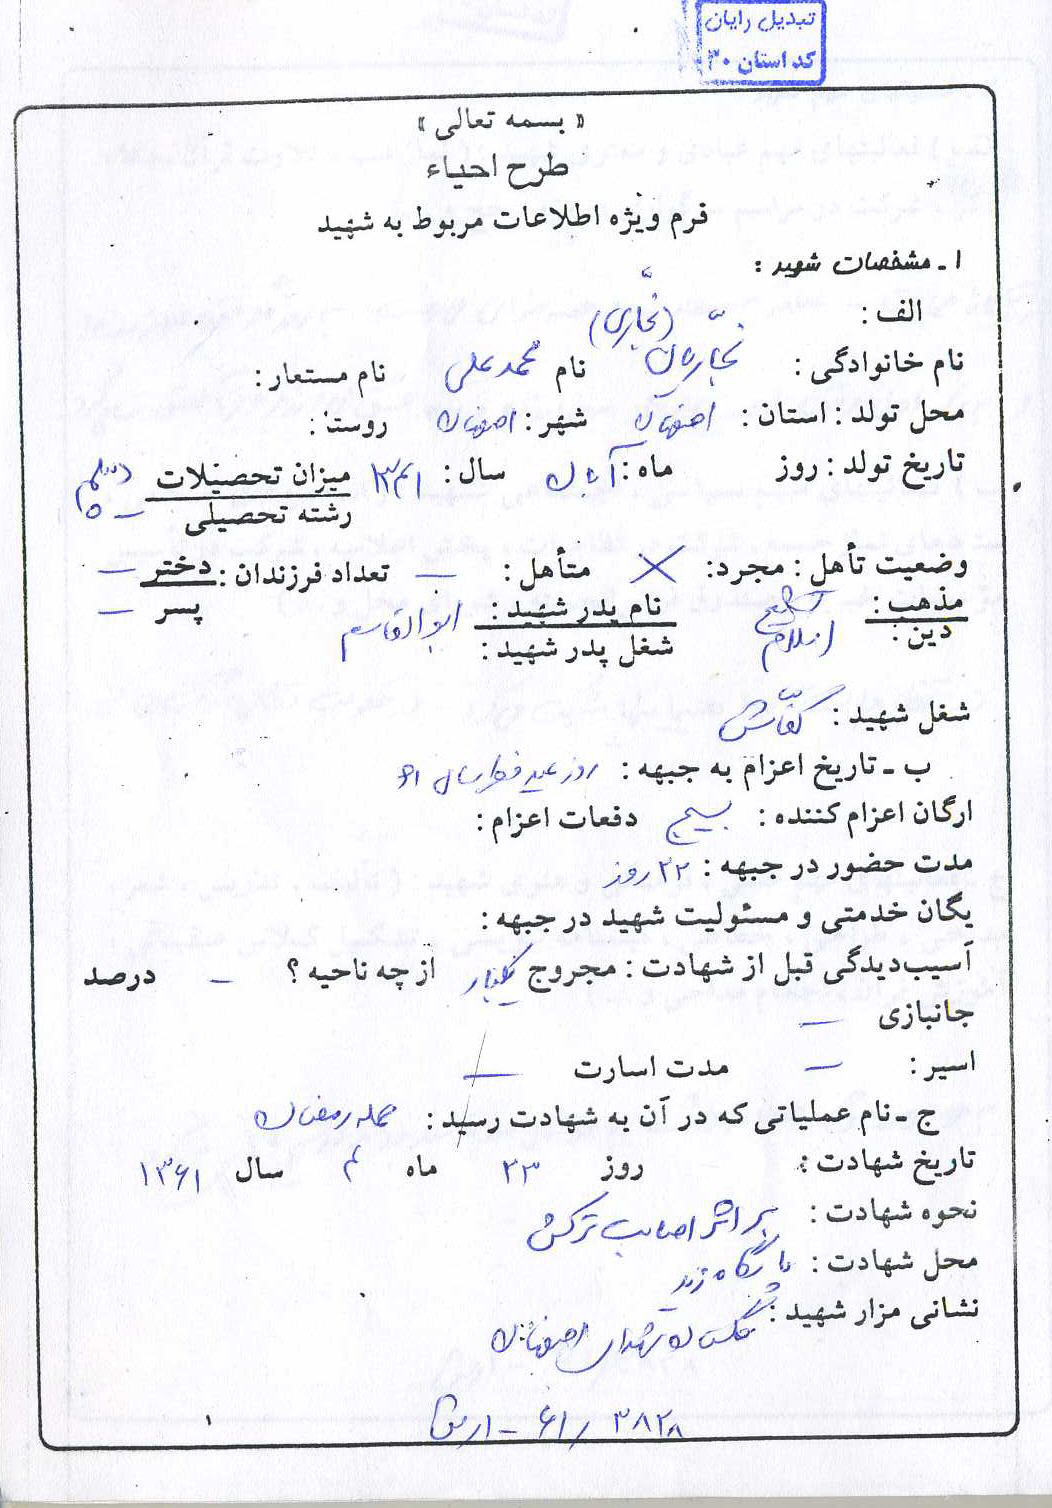 تبدیل رایان
کد استان ۳۰
« بسمه تعالی »
طرح احیاء
فرم ویژه اطلاعات مربوط به شهید
۱ ـ مشخصات شهید :
الف : (نجاری)
نام خانوادگی : نجاریان نام محمدعلی نام مستعار :
محل تولد : استان : اصفهان شهر : اصفهان روستا :
تاریخ تولد : روز ماه : آبان سال : ۱۳۴۱ میزان تحصیلات
رشته تحصیلی —
وضعیت تأهل : مجرد : × متأهل : — تعداد فرزندان : دختر —
مذهب : نام پدر شهید : ابوالقاسم پسر —
دین : اسلام شغل پدر شهید :
شغل شهید : کفاش
ب ـ تاریخ اعزام به جبهه : روز عید فطر سال ۶۱
ارگان اعزام کننده : بسیج دفعات اعزام :
مدت حضور در جبهه : ۲۲ روز
یگان خدمتی و مسئولیت شهید در جبهه :
آسیب‌دیدگی قبل از شهادت : مجروح یکبار از چه ناحیه ؟ — درصد
جانبازی —
اسیر : — مدت اسارت —
ج ـ نام عملیاتی که در آن به شهادت رسید : حمله رمضان
تاریخ شهادت : روز ۲۳ ماه ۴ سال ۱۳۶۱
نحوه شهادت : بر اثر اصابت ترکش
محل شهادت : پاسگاه زید
نشانی مزار شهید : گلستان شهدای اصفهان
۶۱/۳۸۲۸ -